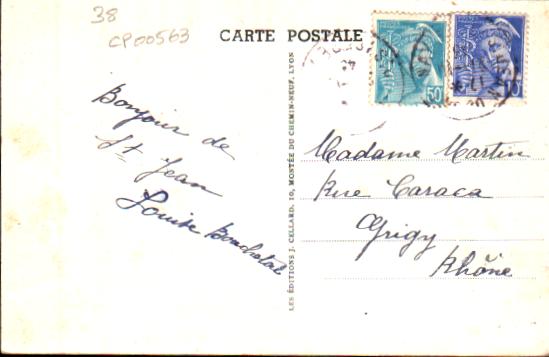 38
CP00563
CARTE POSTALE
Bonjour de
St Jean
Louise
LES ÉDITIONS J. CELLARD, 10, MONTÉE DU CHEMIN-NEUF, LYON
50
Madame Martin
Rue Caraca
Grigy
Rhône